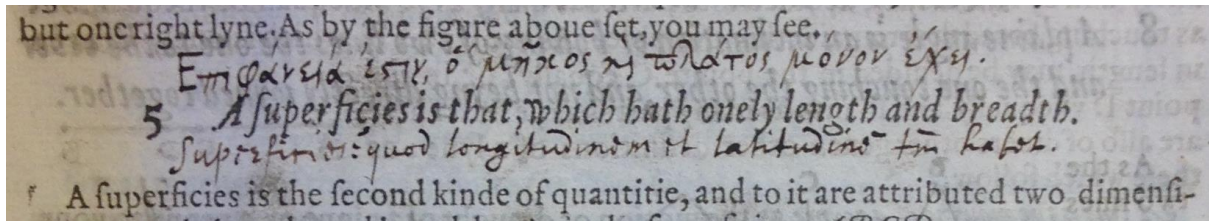 but one right lyne. As by the figure aboue ſet, you may ſee.
Ἐπιφάνεια ἐστιν, ὃ μῆκος κὶ πλάτος μονον ἔχει.
5 A ſuperficies is that, which hath onely length and breadth.
Superficies: quod longitudinem et latitudinē tm̄ habet.
A ſuperficies is the ſecond kinde of quantitie, and to it are attributed two dimenſi-